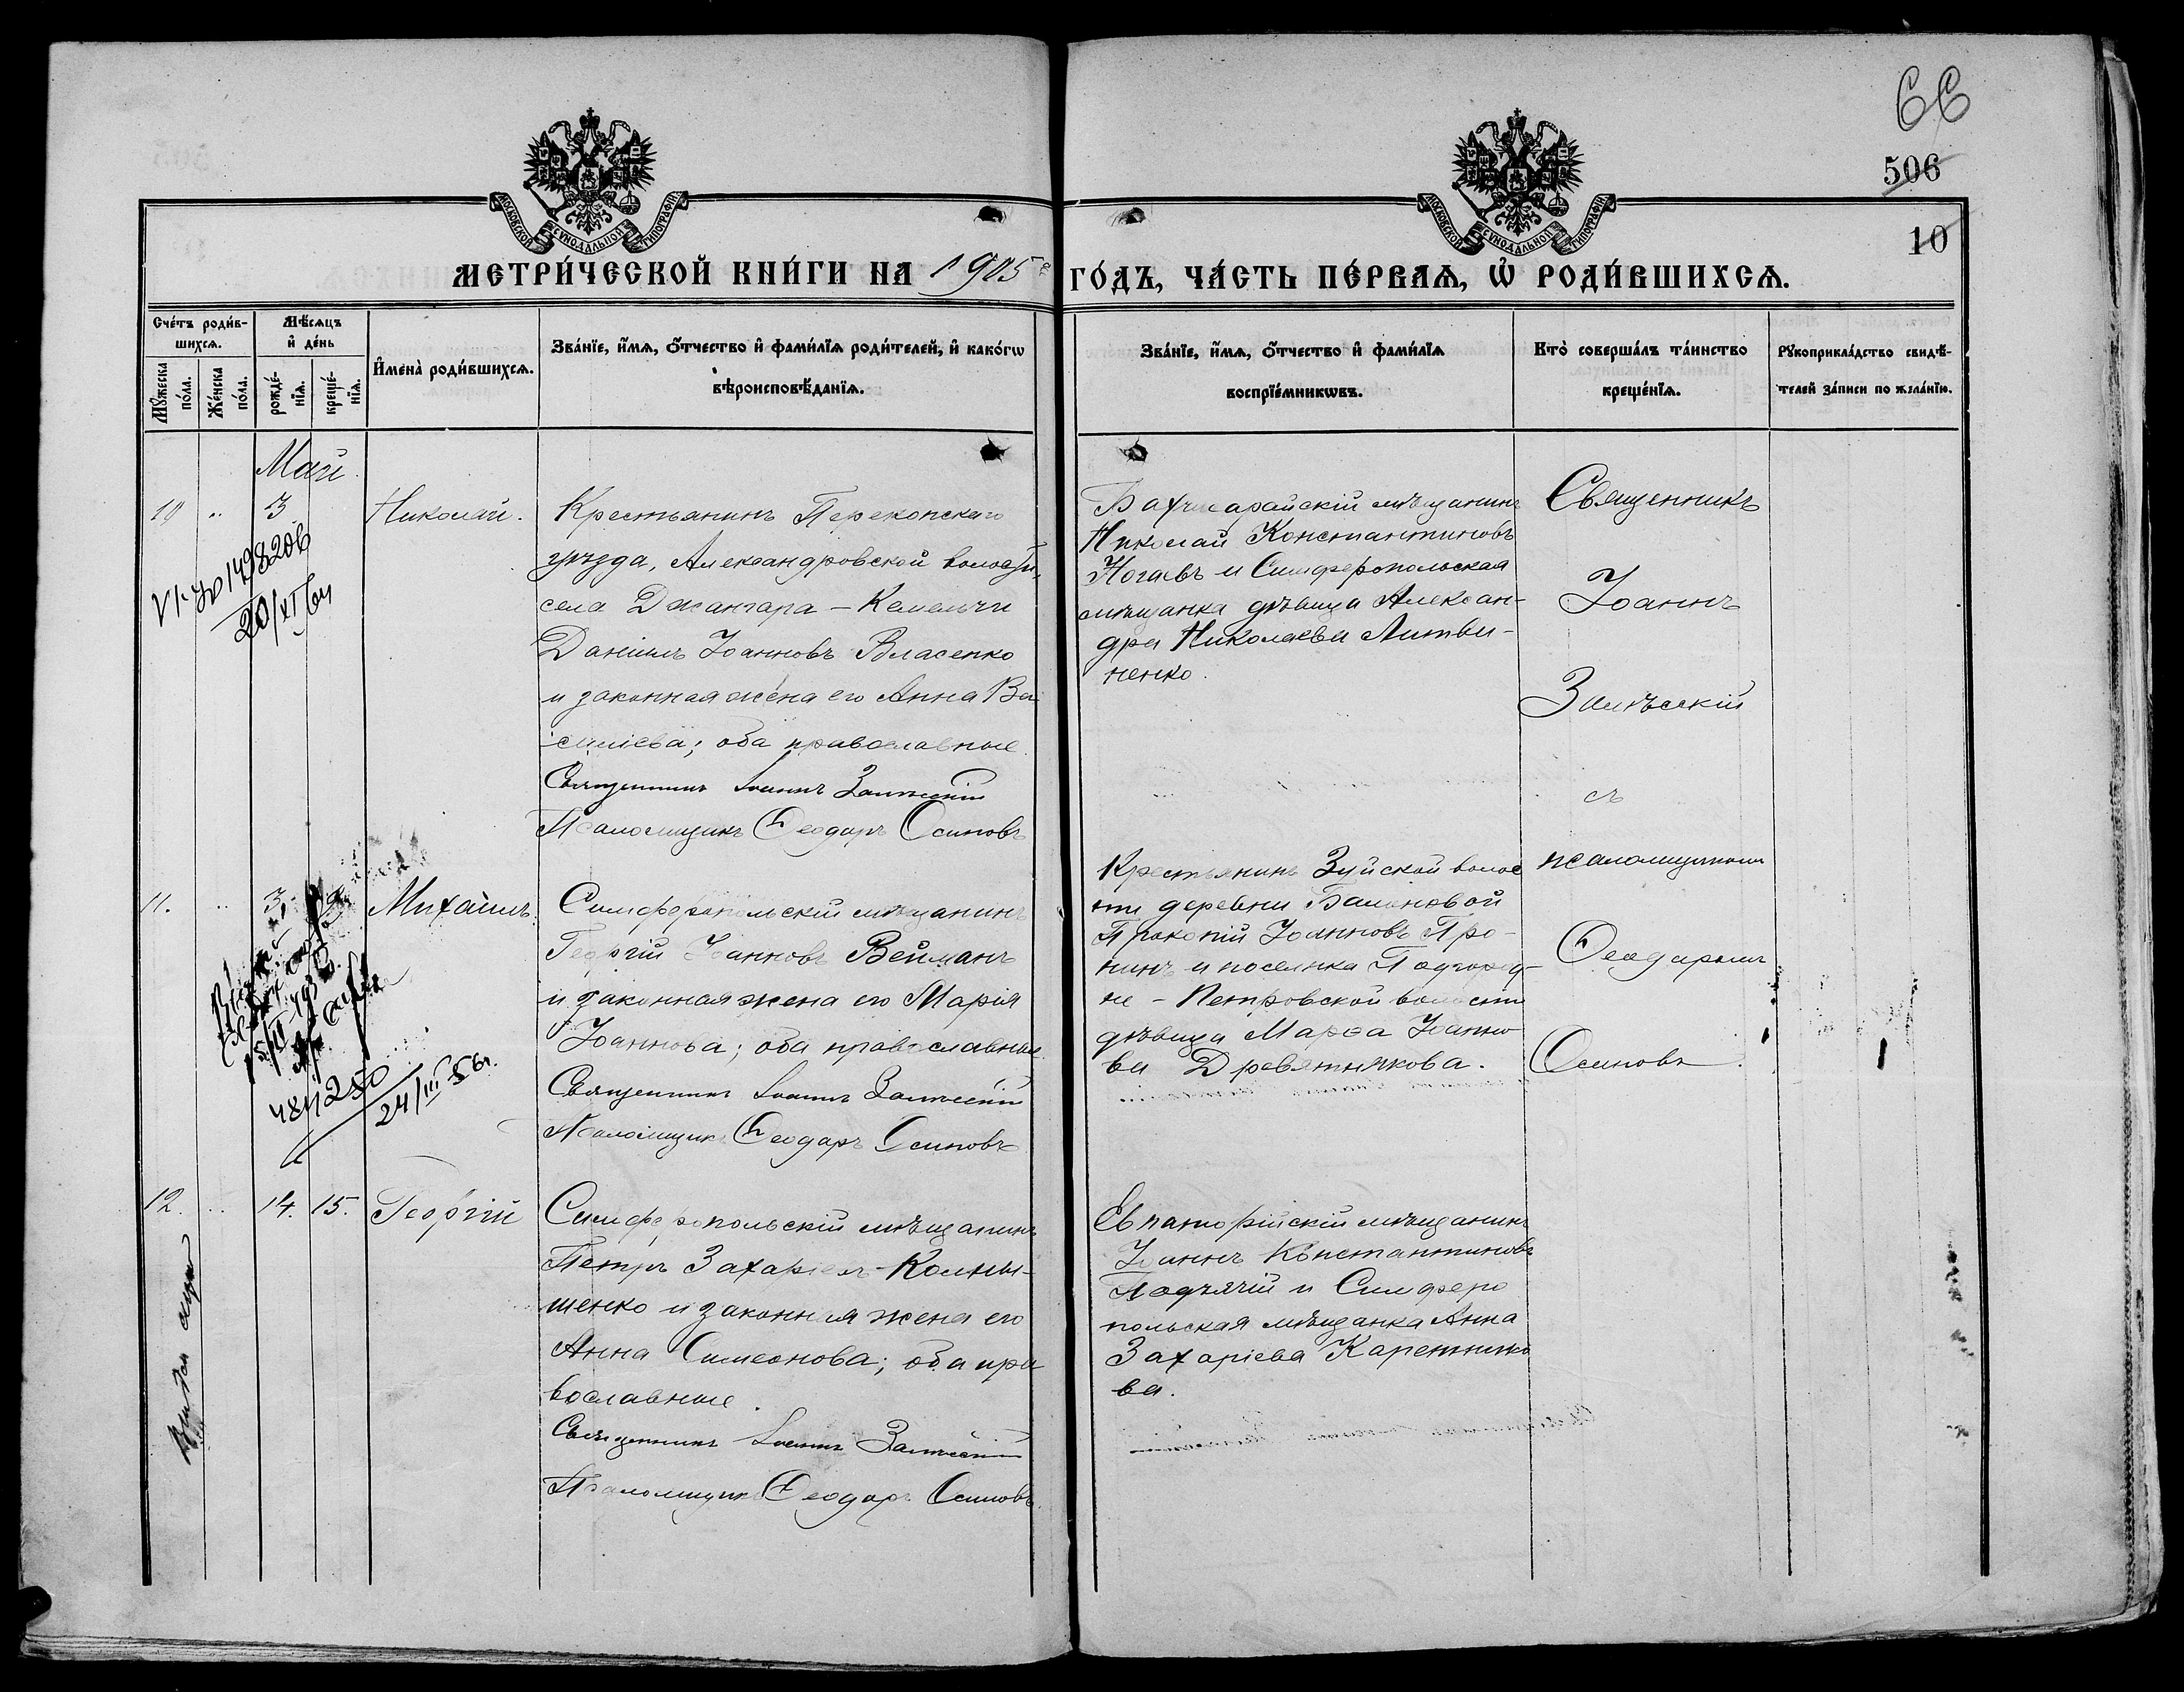 66
506
10
МОСКОВСКОЙ СѴНОДАЛЬНОЙ ТИПОГРАФІИ
МОСКОВСКОЙ СѴНОДАЛЬНОЙ ТИПОГРАФІИ
МЕТРИ́ЧЕСКОЙ КНИ́ГИ НА 1905
ГО́ДЪ, ЧА́СТЬ ПЕ́РВАѦ, Ѽ РОДИ́ВШИХСѦ.
Сче́тъ роди́в-
шихсѧ.
Мꙋ́жеска по́ла.
Же́нска по́ла.
Мѣ́сѧцъ
и҆ де́нь
рожде́-
нїѧ.
креще́-
нїѧ.
И҆мена̀ роди́вшихсѧ.
Зва́нїе, и҆́мѧ, ѻ҆́тчество и҆ фами́лїѧ роди́телей, и҆ како́гѡ
вѣроисповѣ́данїѧ.
Зва́нїе, и҆́мѧ, ѻ҆́тчество и҆ фами́лїѧ
воспрїе́мникѡвъ.
Кто̀ соверша́лъ та́инство
креще́нїѧ.
Рꙋкоприкла́дство свидѣ́-
телей за́писи по жела́нїю.
Май
10 „ 3
Николай.
Крестьянинъ Перекопскаго
уѣзда, Александровской волости,
села Джангара – Кемельчи
Даніилъ Іоанновъ Власенко
и законная жена его Анна Ва
сильева; оба православные
Священникъ Іоаннъ Залѣсскій
Псаломщикъ Ѳеодоръ Осиповъ
Бахчисарайскій мѣщанинъ
Николай Константиновъ
Ногаевъ и Симферопольская
мѣщанка дѣвица Алексан-
дра Николаева Литви-
ненко.
Священникъ
Іоаннъ
Залѣсскій
съ
псаломщикомъ
Ѳеодоромъ
Осиповъ.
20/XI 64
11. „ 3
Михаилъ.
Симферопольскій мѣщанинъ
Георгій Іоанновъ Вейманъ
и законная жена его Марія
Іоаннова; оба православные.
Священникъ Іоаннъ Залѣсскій
Псаломщикъ Ѳеодоръ Осиповъ
Крестьянинъ Зуйской волос
ти деревни Балановой
Прокопій Іоанновъ Про-
нинъ и поселянка Подгород-
не – Петровской волости
дѣвица Марѳа Іоанно
ва Древятникова.
24/III 56 г.
12. „ 14. 15.
Георгій
Симферопольскій мѣщанинъ
Петръ Захаріевъ Колны-
шенко и законная жена его
Анна Симеонова; оба пра
вославные.
Священникъ Іоаннъ Залѣсскій
Псаломщикъ Ѳеодоръ Осиповъ.
Евпаторійскій мѣщанинъ
Іоаннъ Константиновъ
Подъячій и Симферо
польская мѣщанка Анна
Захаріева Каретнико
ва.